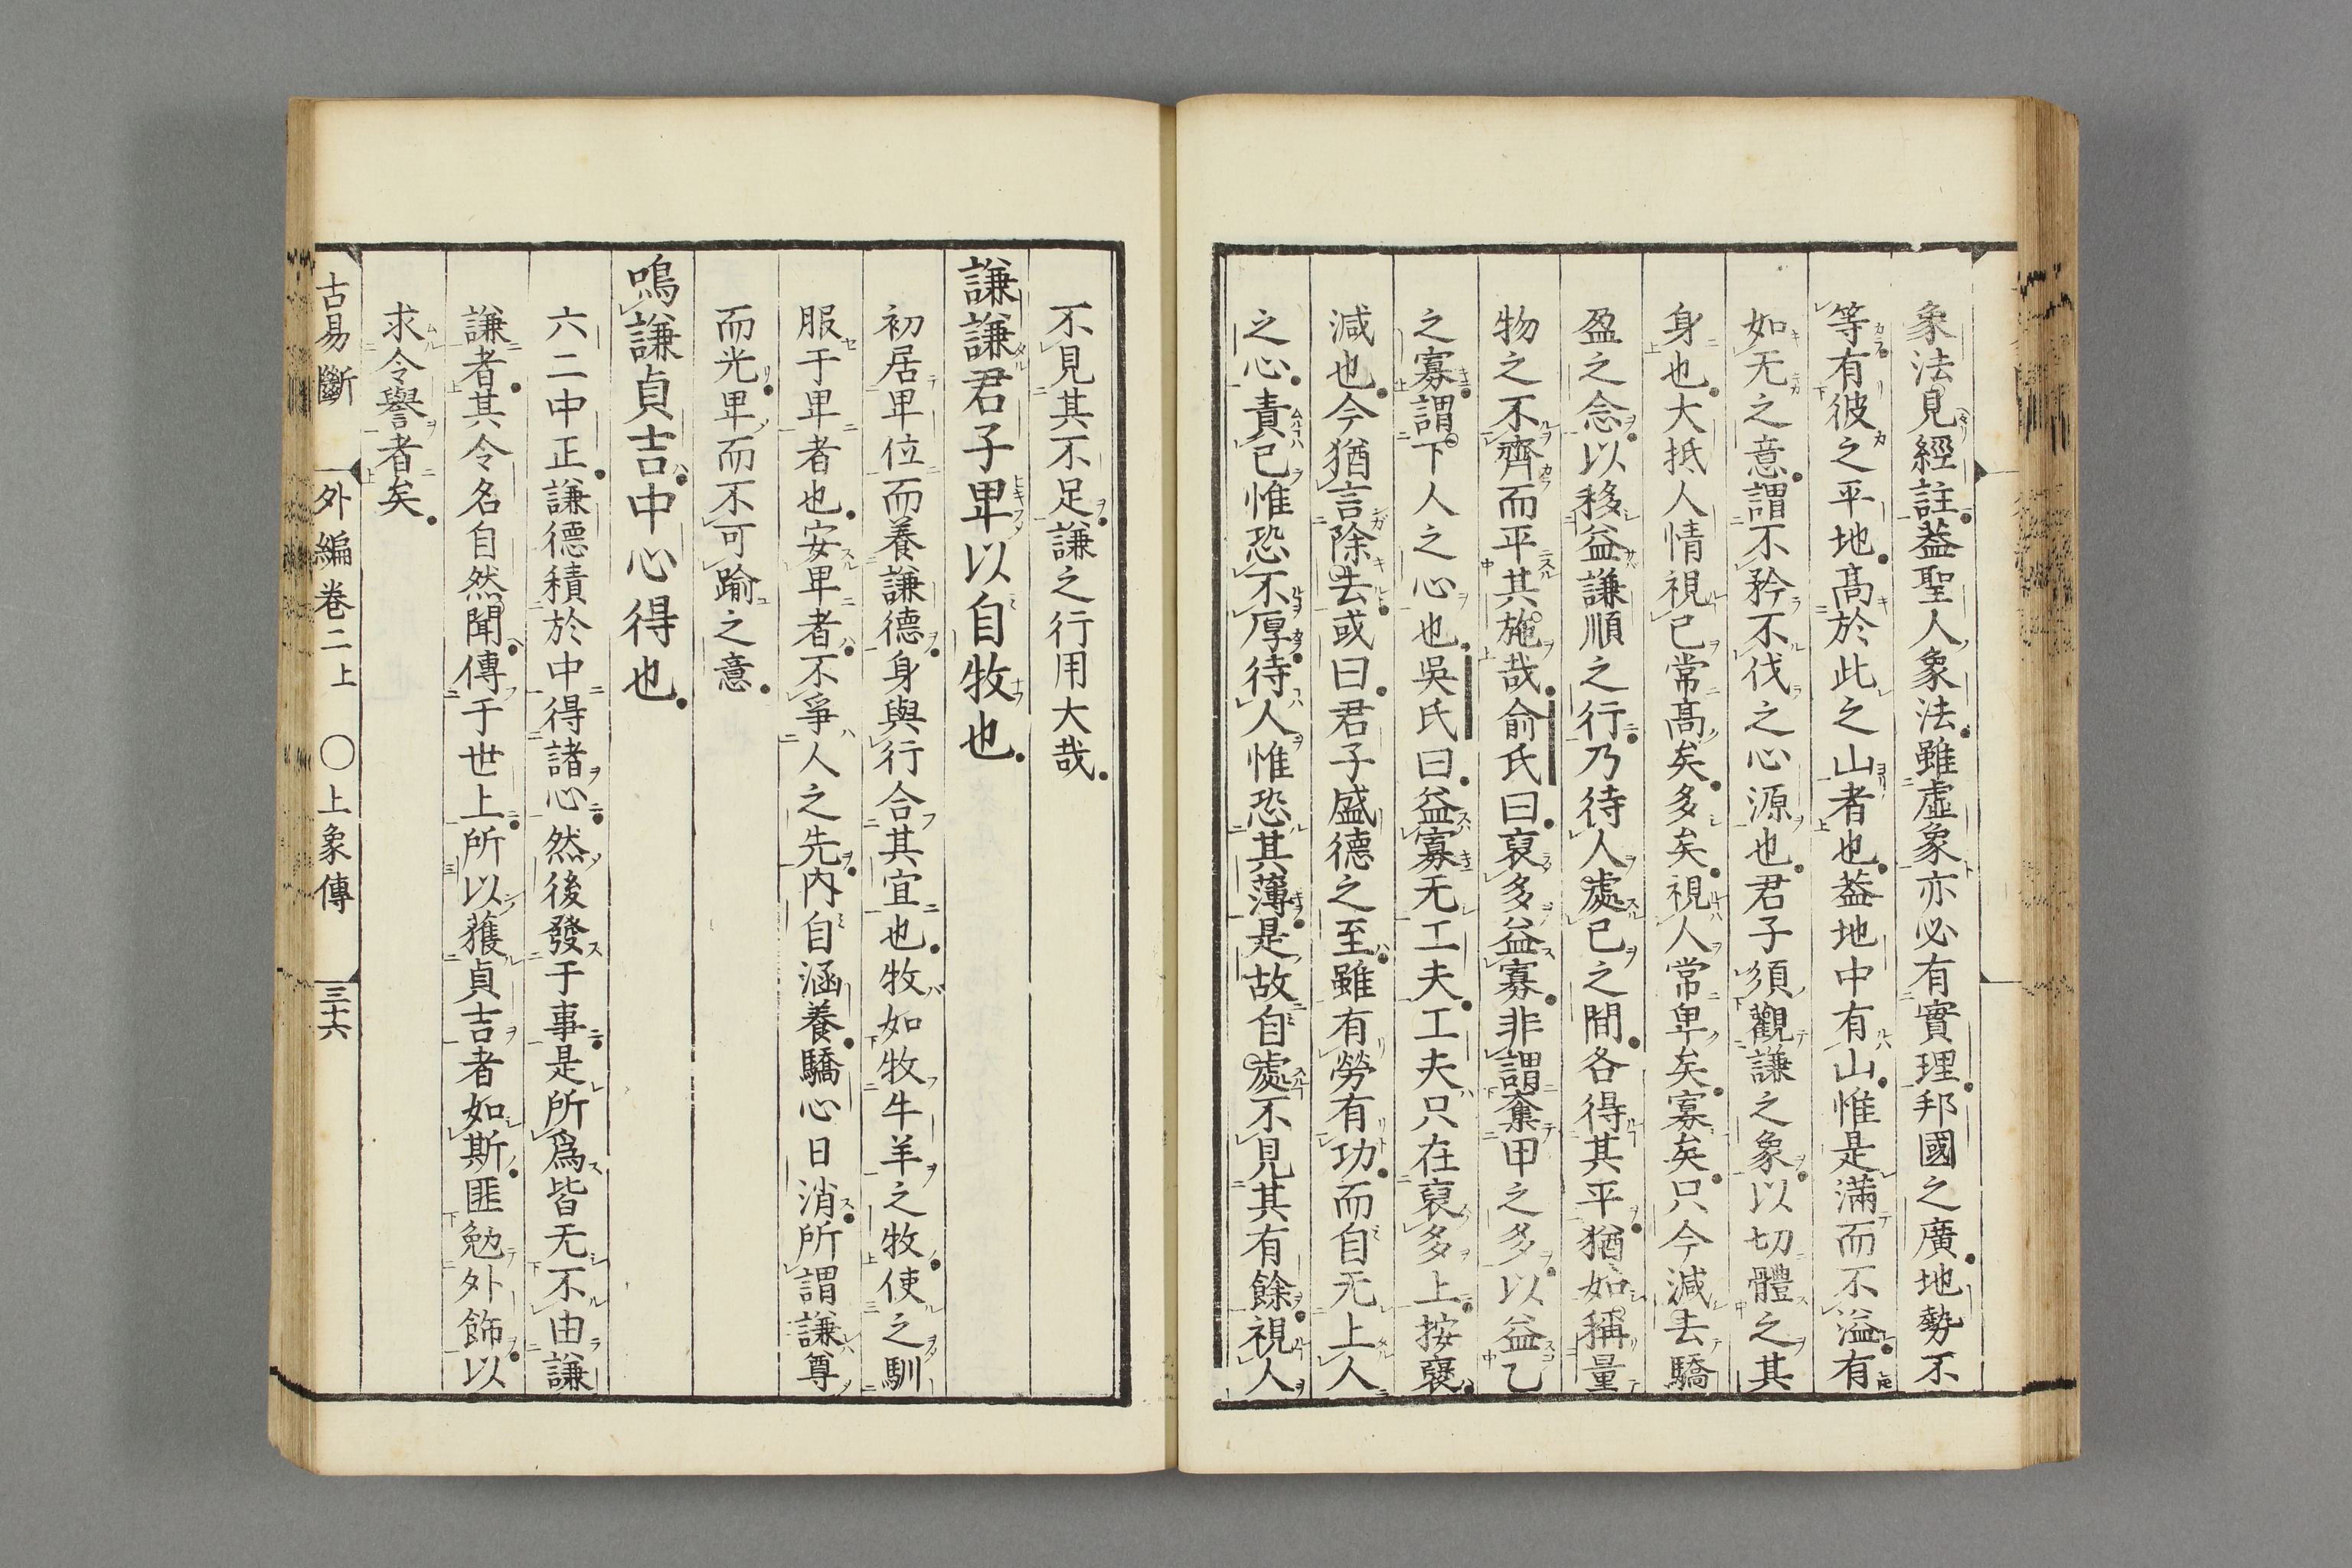 象法見經註葢聖人象法雖虛象亦必有實理邦國之廣地勢不
等有彼之平地高於此之山者也葢地中有山惟是滿而不溢有
如无之意謂不矜不伐之心源也君子須觀謙之象以切體之其
身也大抵人情視己常高矣多矣視人常卑矣寡矣只今減去驕
盈之念以移益謙順之行乃待人處己之間各得其平猶如稱量
物之不齊而平其施哉俞氏曰裒多益寡非謂奪甲之多以益乙
之寡謂下人之心也吳氏曰益寡无工夫工夫只在裒多上按裒
減也今猶言除去或曰君子盛德之至雖有勞有功而自无上人
之心責己惟恐不厚待人惟恐其薄是故自處不見其有餘視人
不見其不足謙之行用大哉
謙謙君子卑以自牧也
初居卑位而養謙德身與行合其宜也牧如牧牛羊之牧使之馴
服于卑者也安卑者不爭人之先內自涵養驕心日消所謂謙尊
而光卑而不可踰之意
鳴謙貞吉中心得也
六二中正謙德積於中得諸心然後發于事是所爲皆无不由謙
謙者其令名自然聞傳于世上所以獲貞吉者如斯匪勉外飾以
求令譽者矣
古易斷 外編卷二上 〇上象傳 三十六